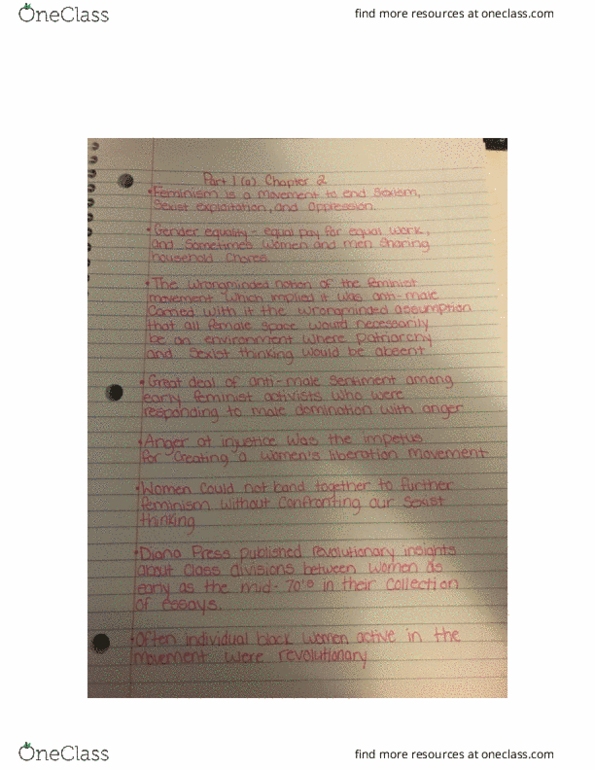 OneClass
find more resources at oneclass.com
Part 1 (a) Chapter 2
• Feminism is a movement to end sexism,
sexist exploitation, and oppression.
• Gender equality - equal pay for equal work,
and sometimes women and men sharing
household chores.
• The wrongminded notion of the feminist
movement which implied it was anti-male
carried with it the wrongminded assumption
that all female space would necessarily
be an environment where patriarchy
and sexist thinking would be absent
• Great deal of anti-male sentiment among
early feminist activists who were
responding to male domination with anger
• Anger at injustice was the impetus
for creating a women's liberation movement
• Women could not band together to further
feminism without confronting our sexist
thinking
• Diana Press published revolutionary insights
about class divisions between women as
early as the mid-70's in their collection
of essays.
• Often individual black women active in the
movement were revolutionary
OneClass
find more resources at oneclass.com